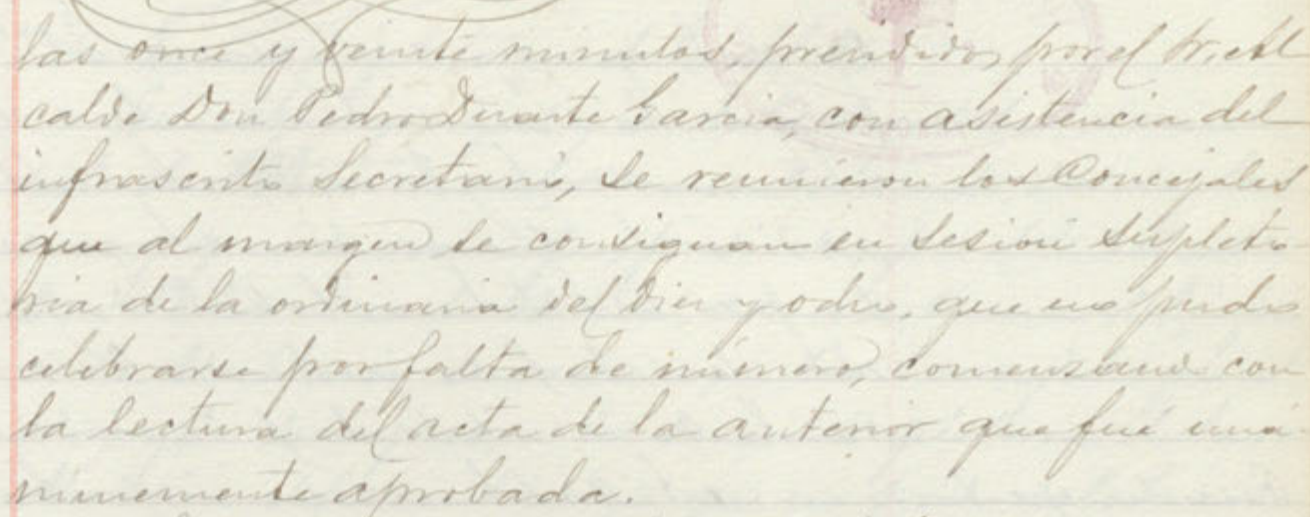 las once y veinte minutos, presididos por el Sr. Al
calde Don Pedro Duarte Garcia, con asistencia del
infrascrito Secretario, se reunieron los Concejales
que al margen se consignan en sesión supleto
ria de la ordinaria del diez y ocho, que no pudo
celebrarse por falta de número, comenzando con
la lectura del acta de la anterior que fué uná
nimemente aprobada.